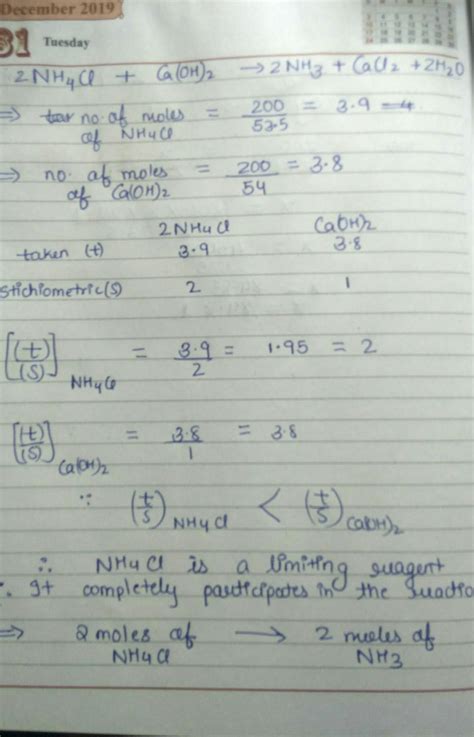 December 2019
31 Tuesday
2NH₄Cl + Ca(OH)₂ → 2NH₃ + CaCl₂ + 2H₂O
⇒ no. of moles of NH₄Cl = 200/53.5 = 3.9
⇒ no. of moles of Ca(OH)₂ = 200/54 = 3.8
2NH₄Cl Ca(OH)₂
taken (t) 3.9 3.8
Stichiometric(S) 2 1
[(t)/(S)] NH₄Cl = 3.9/2 = 1.95 = 2
[(t)/(S)] Ca(OH)₂ = 3.8/1 = 3.8
∵ (t/S) NH₄Cl < (t/S) Ca(OH)₂
∴ NH₄Cl is a limiting reagent
∴ It completely participates in the reactio
⇒ 2 moles of NH₄Cl → 2 moles of NH₃